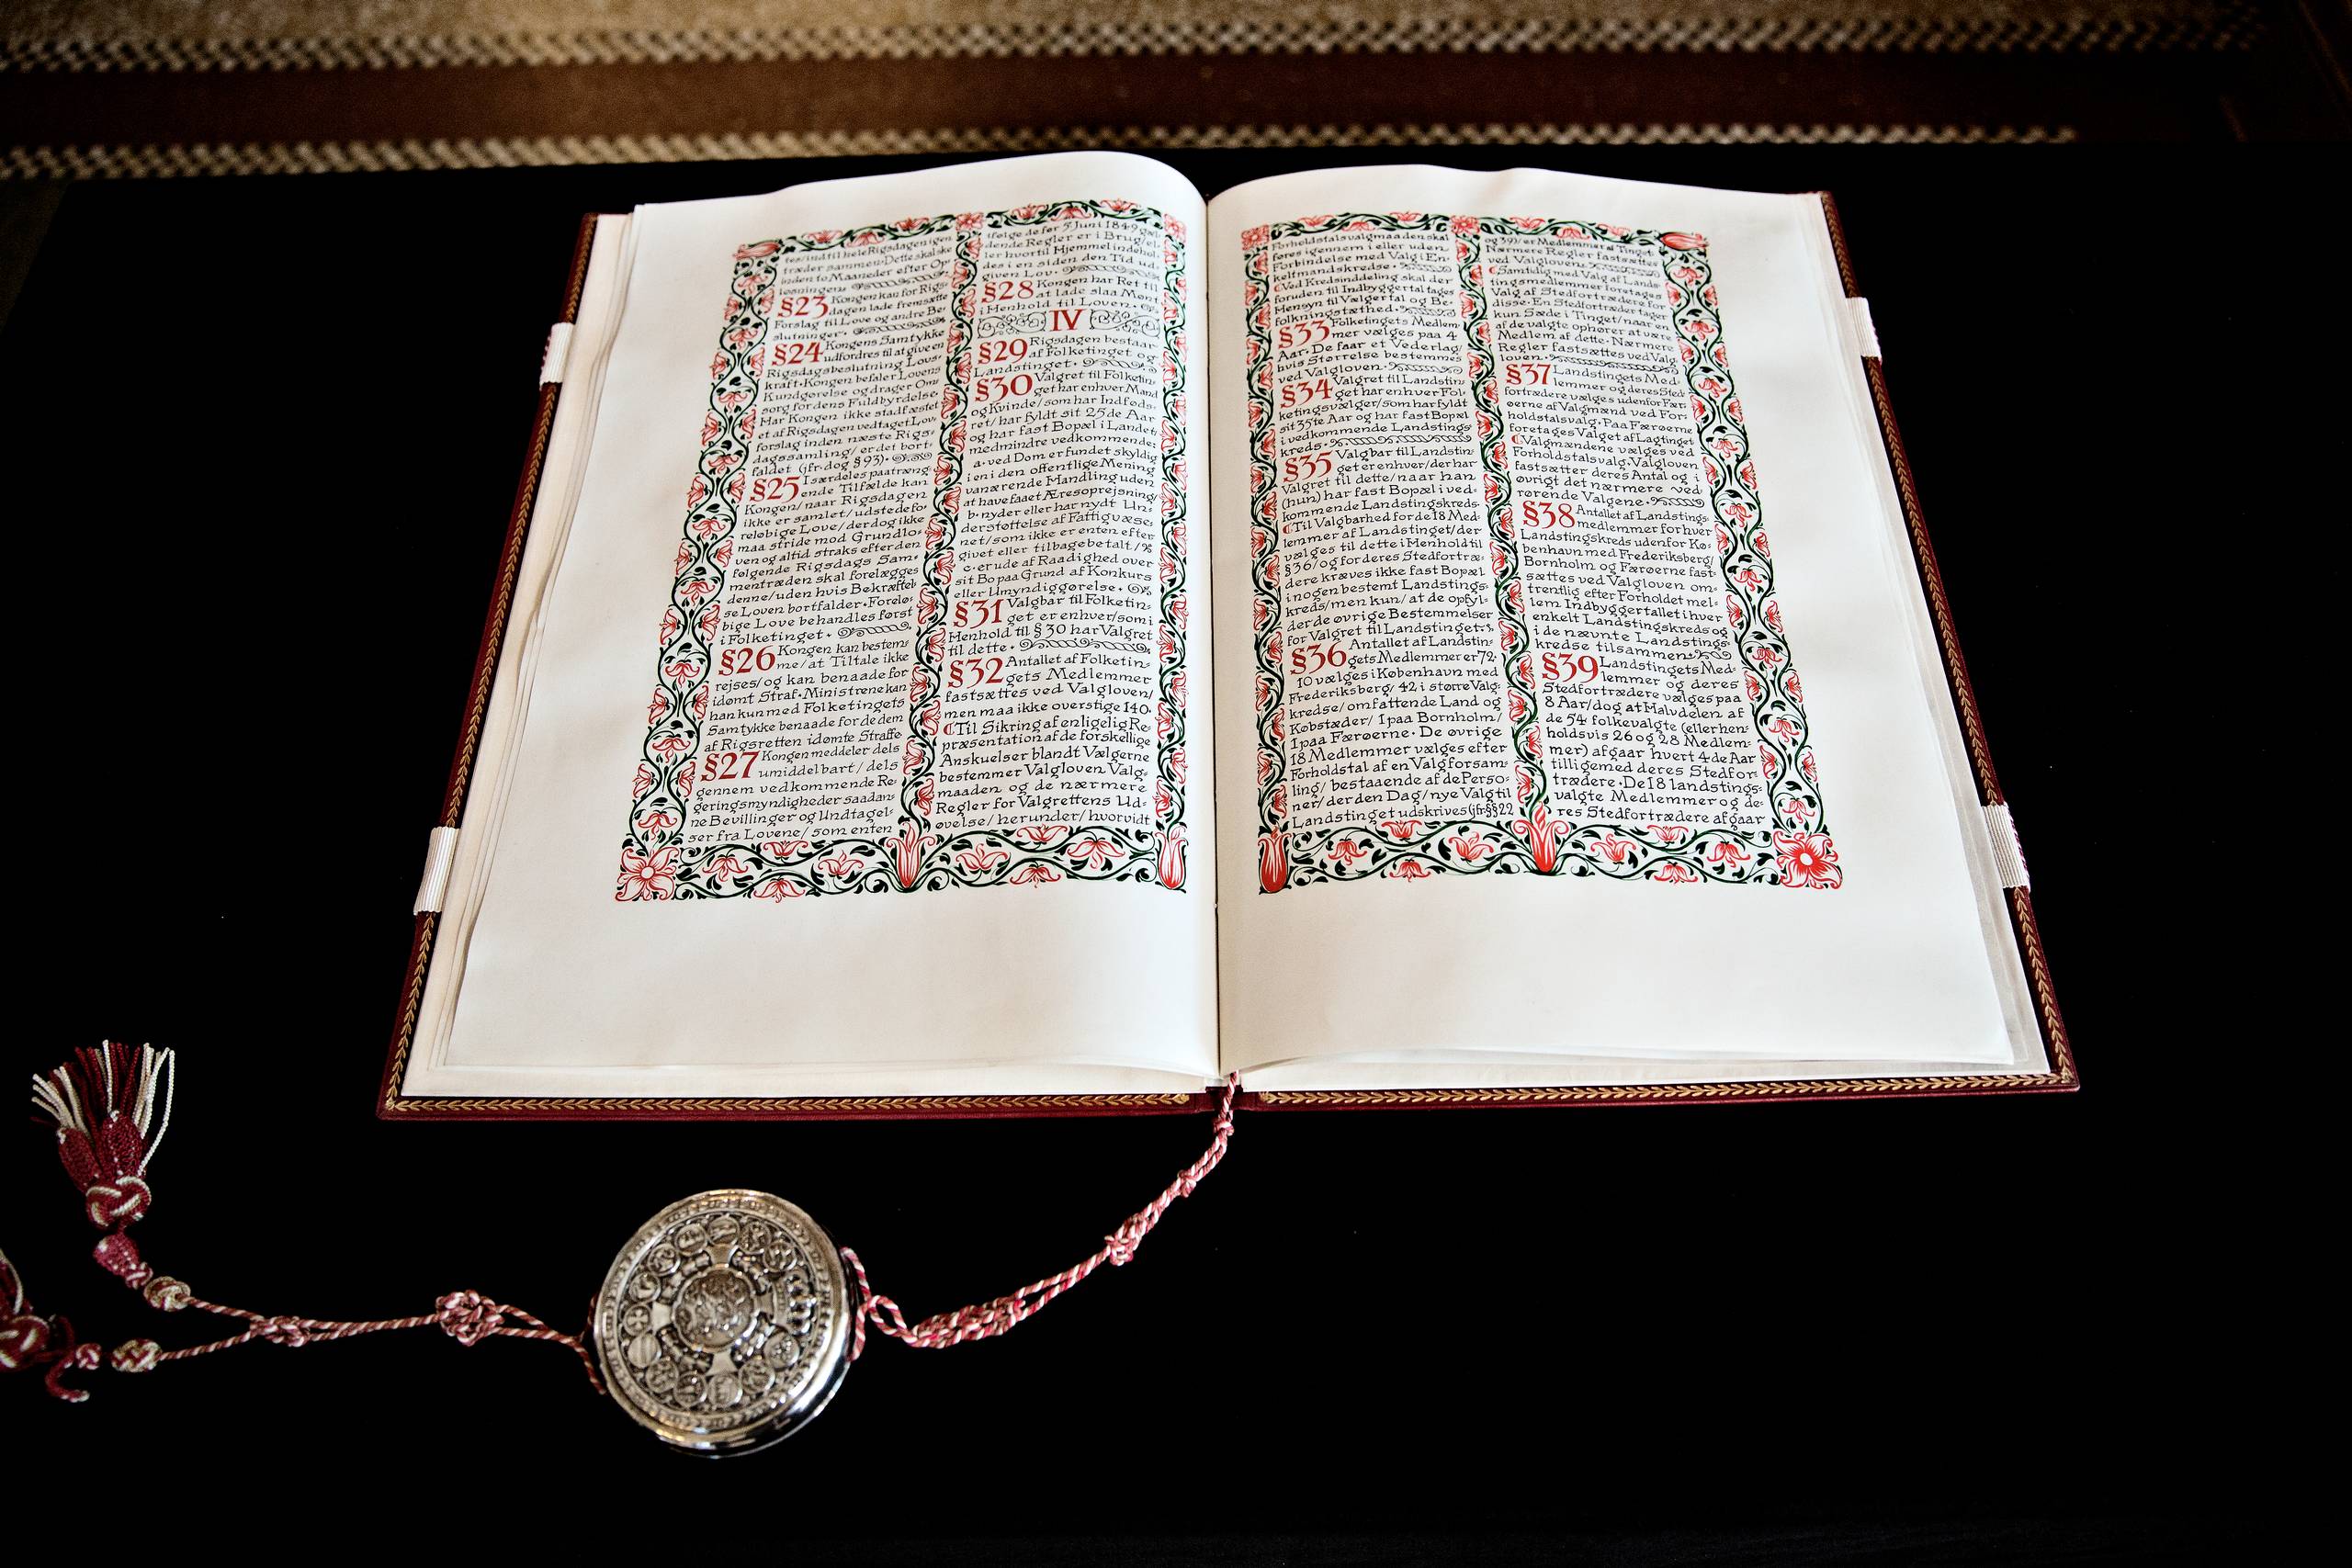 tes/indtil hele Rigsdagen igen
træder sammen. Dette skal ske
inden to Maaneder efter Op-
løsningen.
§23 Kongen kan for Rigs-
dagen lade fremsætte
Forslag til Love og andre Be-
slutninger.
§24 Kongens Samtykke
udfordres til at give en
Rigsdagsbeslutning Lovs-
kraft. Kongen befaler Lovens
Kundgørelse og drager Om-
sorg for dens Fuldbyrdelse.
Har Kongen ikke stadfæstet
et af Rigsdagen vedtaget Lov-
forslag inden næste Rigs-
dagssamling/ er det bort-
faldet (jfr. dog § 93).
§25 I særdeles paatræng-
ende Tilfælde kan
Kongen/ naar Rigsdagen
ikke er samlet/ udstede fo-
reløbige Love/ der dog ikke
maa stride mod Grundlo-
ven og altid straks efter den
følgende Rigsdags Sam-
mentræden skal forelægges
denne/ uden hvis Bekræftel-
se Loven bortfalder. Forelø-
bige Love behandles først
i Folketinget.
§26 Kongen kan bestem-
me/ at Tiltale ikke
rejses/ og kan benaade for
idømt Straf. Ministrene kan
han kun med Folketingets
Samtykke benaade for de dem
af Rigsretten idømte Straffe
§27 Kongen meddeler dels
umiddelbart/ dels
gennem vedkommende Re-
geringsmyndigheder saadan-
ne Bevillinger og Undtagel-
ser fra Lovene/ som enten
ifølge de før 5 Juni 1849 gæl-
dende Regler er i Brug/ el-
ler hvortil Hjemmel indehol-
des i en siden den Tid ud-
given Lov.
§28 Kongen har Ret til
at lade slaa Mønt
i Henhold til Loven.
IV
§29 Rigsdagen bestaar
af Folketinget og
Landstinget.
§30 Valgret til Folketin-
get har enhver Mand
og Kvinde/ som har Indføds-
ret/ har fyldt sit 25de Aar
og har fast Bopæl i Landet/
medmindre vedkommende:
a. ved Dom er fundet skyldig
i en i den offentlige Mening
vanærende Handling uden
at have faaet Æresoprejsning/
b. nyder eller har nydt Un-
derstøttelse af Fattigvæse-
net/ som ikke er enten efter-
givet eller tilbagebetalt/
c. er ude af Raadighed over
sit Bo paa Grund af Konkurs
eller Umyndiggørelse.
§31 Valgbar til Folketin-
get er enhver/ som i
Henhold til § 30 har Valgret
til dette.
§32 Antallet af Folketin-
gets Medlemmer
fastsættes ved Valgloven/
men maa ikke overstige 140.
Til Sikring af en ligelig Re-
præsentation af de forskellige
Anskuelser blandt Vælgerne
bestemmer Valgloven Valg-
maaden og de nærmere
Regler for Valgrettens Ud-
øvelse/ herunder/ hvorvidt
Forholdstalsvalgmaaden skal
føres igennem i eller uden
Forbindelse med Valg i En-
keltmandskredse.
Ved Kredsinddeling skal der
foruden til Indbyggertal tages
Hensyn til Vælgertal og Be-
folkningstæthed.
§33 Folketingets Medlem-
mer vælges paa 4
Aar. De faar et Vederlag/
hvis Størrelse bestemmes
ved Valgloven.
§34 Valgret til Landstin-
get har enhver Fol-
ketingsvælger/ som har fyldt
sit 35te Aar og har fast Bopæl
i vedkommende Landstings-
kreds.
§35 Valgbar til Landstin-
get er enhver/ der har
Valgret til dette/ naar han
(hun) har fast Bopæl i ved-
kommende Landstingskreds.
Til Valgbarhed for de 18 Med-
lemmer af Landstinget/ der
vælges til dette i Henhold til
§ 36/ og for deres Stedfortræ-
dere kræves ikke fast Bopæl
i nogen bestemt Landstings-
kreds/ men kun/ at de opfyl-
der de øvrige Bestemmelser
for Valgret til Landstinget.
§36 Antallet af Landstin-
gets Medlemmer er 72.
10 vælges i København med
Frederiksberg/ 42 i større Valg-
kredse/ omfattende Land og
Købstæder/ 1 paa Bornholm/
1 paa Færøerne. De øvrige
18 Medlemmer vælges efter
Forholdstal af en Valgforsam-
ling/ bestaaende af de Perso-
ner/ der den Dag/ nye Valg til
Landstinget udskrives (jfr. §§ 22
og 39)/ er Medlemmer af Tinget.
Nærmere Regler fastsættes
ved Valgloven.
Samtidig med Valg af Lands-
tingsmedlemmer foretages
Valg af Stedfortrædere for
disse. En Stedfortræder tager
kun Sæde i Tinget/ naar en
af de valgte ophører at være
Medlem af dette. Nærmere
Regler fastsættes ved Valg-
loven.
§37 Landstingets Med-
lemmer og deres Sted-
fortrædere vælges udenfor Fær-
øerne af Valgmænd ved For-
holdstalsvalg. Paa Færøerne
foretages Valget af Lagtinget
Valgmændene vælges ved
Forholdstalsvalg. Valgloven
fastsætter deres Antal og i
øvrigt det nærmere ved-
rørende Valgene.
§38 Antallet af Landstings-
medlemmer for hver
Landstingskreds udenfor Kø-
benhavn med Frederiksberg/
Bornholm og Færøerne fast-
sættes ved Valgloven om-
trentlig efter Forholdet mel-
lem Indbyggertallet i hver
enkelt Landstingskreds og
i de nævnte Landstings-
kredse tilsammen.
§39 Landstingets Med-
lemmer og deres
Stedfortrædere vælges paa
8 Aar/ dog at Halvdelen af
de 54 folkevalgte (eller hen-
holdsvis 26 og 28 Medlem-
mer) afgaar hvert 4de Aar
tilligemed deres Stedfor-
trædere. De 18 landstings-
valgte Medlemmer og de-
res Stedfortrædere afgaar